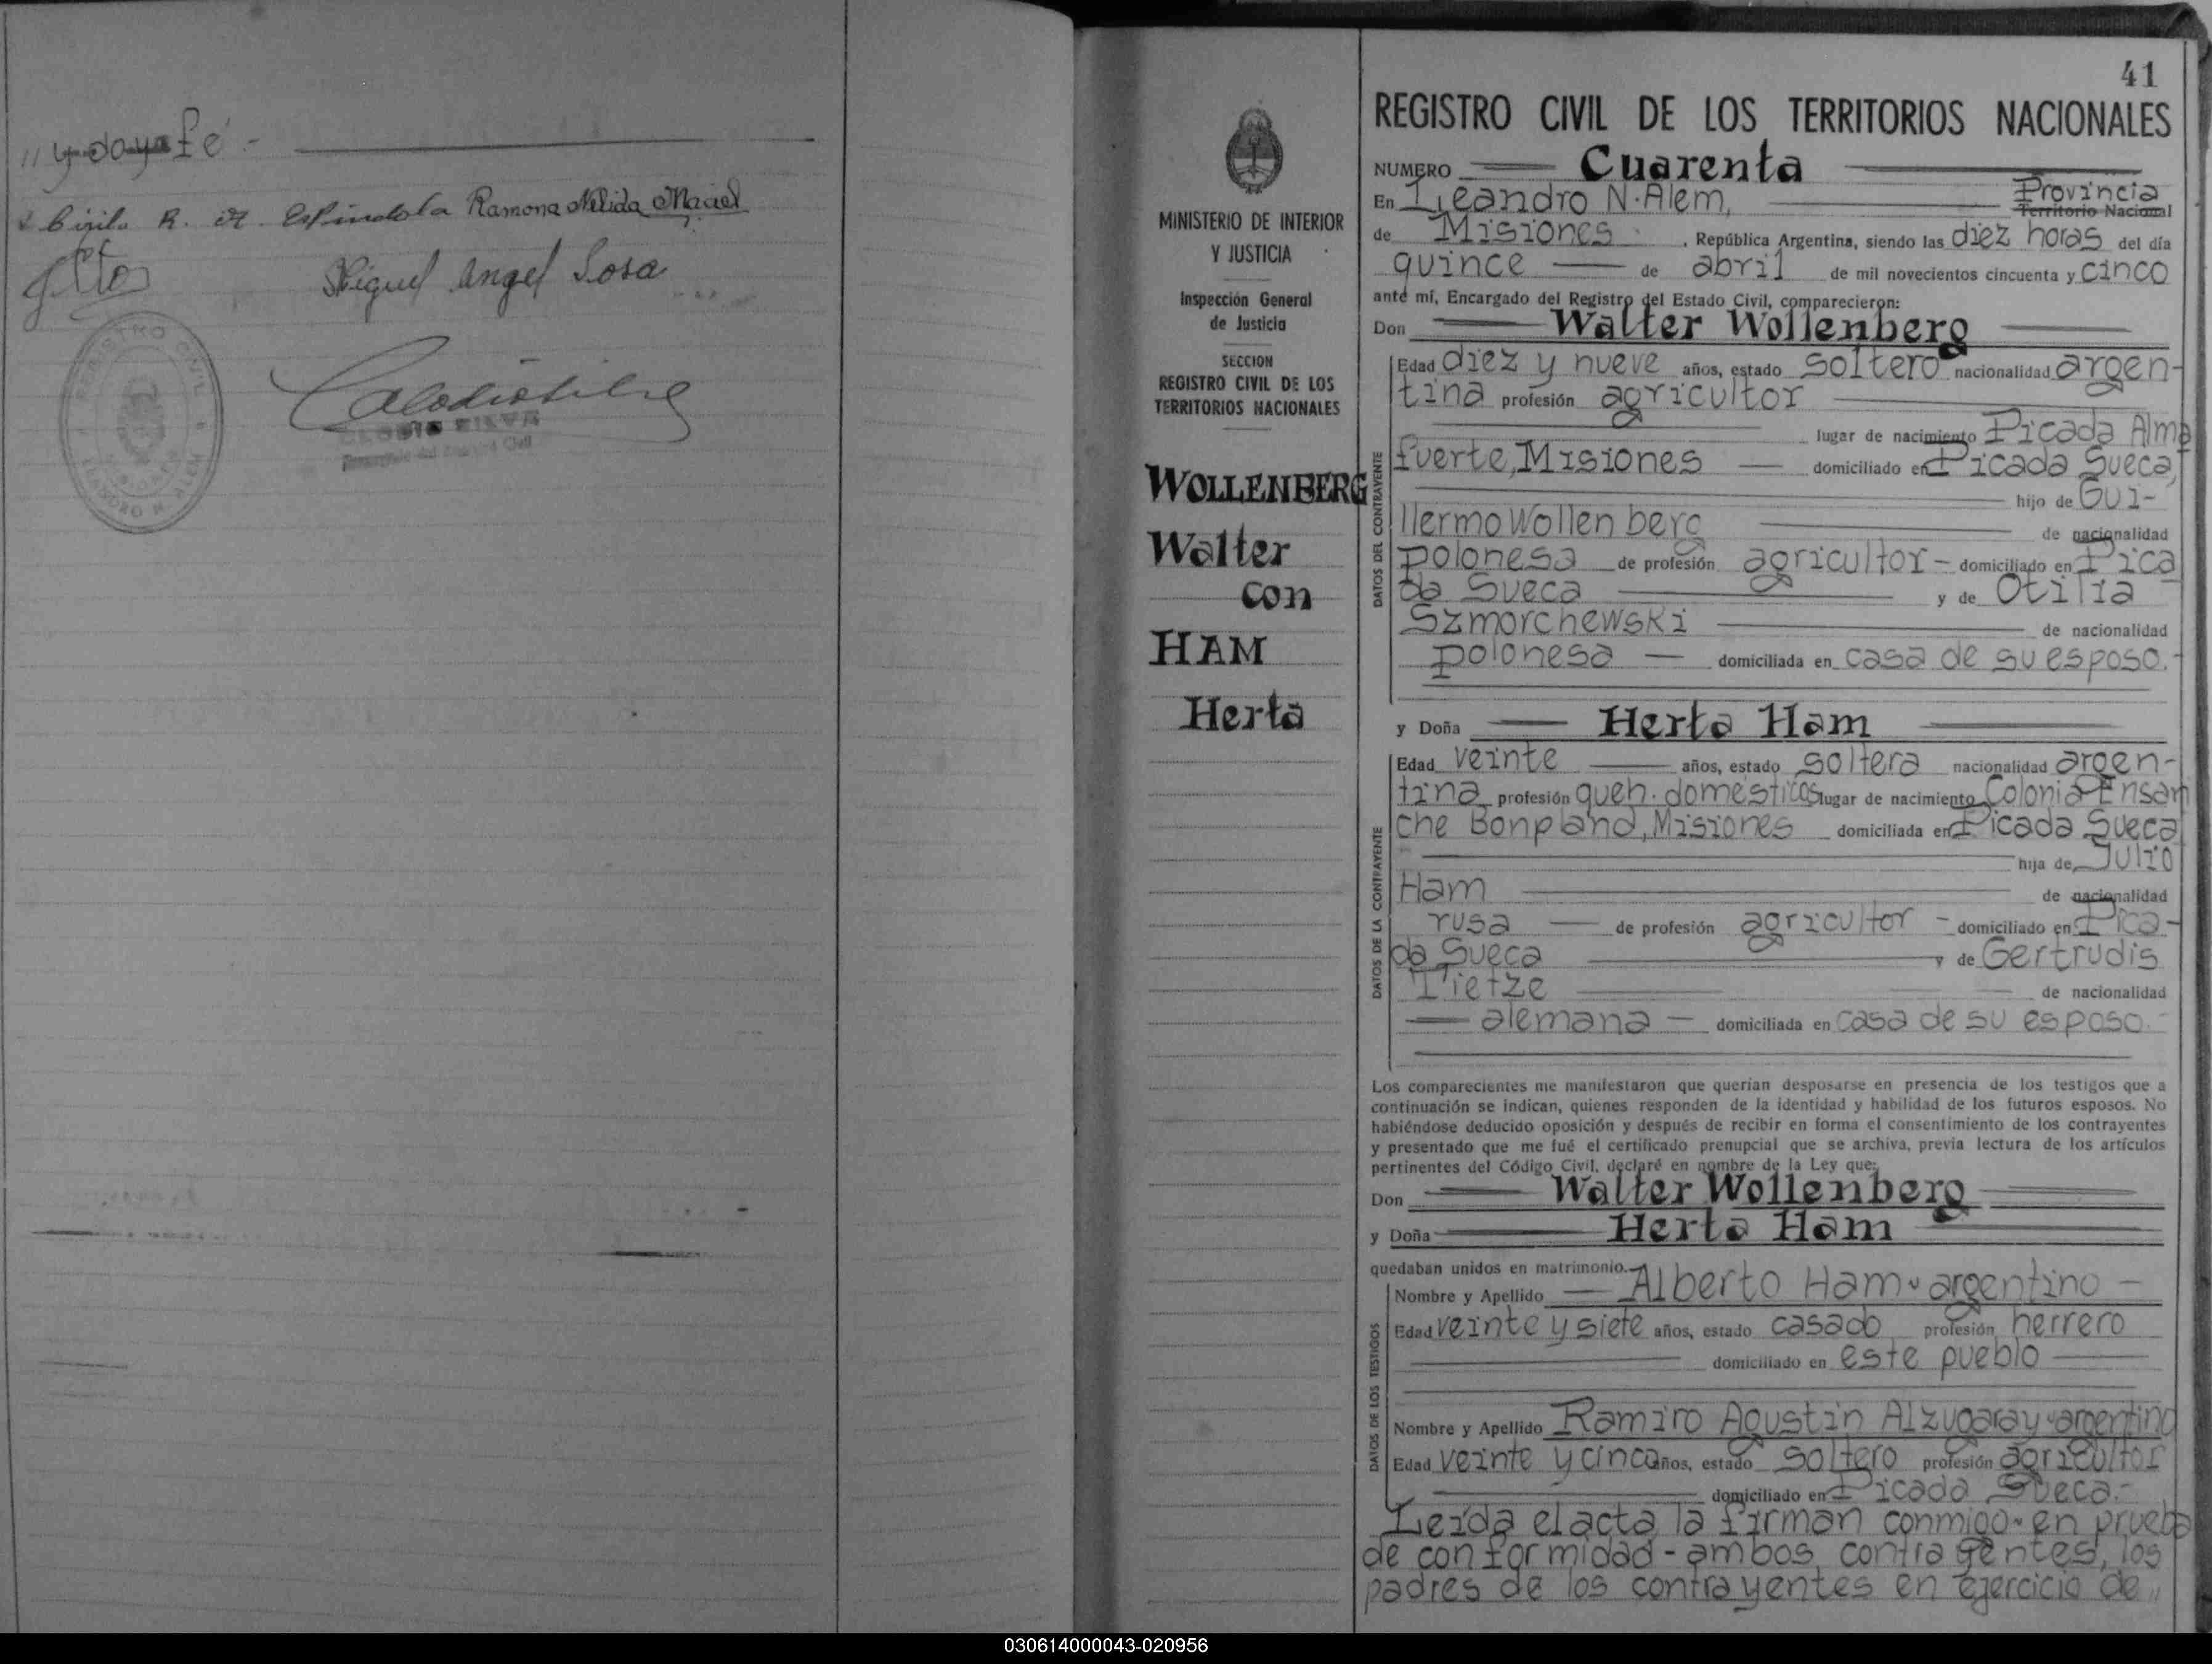 " y doy fé.-
Cirilo R. de Espíndola Ramona Nélida Maciel
Miguel Angel Sosa
REGISTRO CIVIL
LEANDRO N. ALEM
CLODIO SILVA
41
REGISTRO CIVIL DE LOS TERRITORIOS NACIONALES
NUMERO Cuarenta
En Leandro N. Alem, Provincia
Territorio Nacional
de Misiones, República Argentina, siendo las diez horas del día
quince de abril de mil novecientos cincuenta y cinco
ante mí, Encargado del Registro del Estado Civil, comparecieron:
Don Walter Wollenberg
Edad diez y nueve años, estado soltero nacionalidad argen-
tina profesión agricultor
lugar de nacimiento Picada Alma
fuerte, Misiones domiciliado en Picada Sueca,
hijo de Gui-
llermo Wollenberg de nacionalidad
polonesa de profesión agricultor - domiciliado en Pica
da Sueca y de Otilia
Szmorchewski de nacionalidad
polonesa domiciliada en casa de su esposo.-
y Doña Herta Ham
Edad veinte años, estado soltera nacionalidad argen-
tina profesión queh. domésticos lugar de nacimiento Colonia Ensan
che Bonpland, Misiones domiciliada en Picada Sueca
hija de Julio
Ham de nacionalidad
rusa de profesión agricultor - domiciliado en Pica-
da Sueca y de Gertrudis
Tietze de nacionalidad
alemana domiciliada en casa de su esposo.-
Los comparecientes me manifestaron que querían desposarse en presencia de los testigos que a
continuación se indican, quienes responden de la identidad y habilidad de los futuros esposos. No
habiéndose deducido oposición y después de recibir en forma el consentimiento de los contrayentes
y presentado que me fué el certificado prenupcial que se archiva, previa lectura de los artículos
pertinentes del Código Civil, declaré en nombre de la Ley que:
Don Walter Wollenberg
y Doña Herta Ham
quedaban unidos en matrimonio.-
Nombre y Apellido Alberto Ham - argentino -
Edad veinte y siete años, estado casado profesión herrero
domiciliado en este pueblo
Nombre y Apellido Ramiro Agustín Alzugaray - argentino
Edad veinte y cinco años, estado soltero profesión agricultor
domiciliado en Picada Sueca.-
Leída el acta la firman conmigo - en prueba
de conformidad - ambos contra gentes, los
padres de los contrayentes en ejercicio de "
MINISTERIO DE INTERIOR
Y JUSTICIA
Inspección General
de Justicia
SECCION
REGISTRO CIVIL DE LOS
TERRITORIOS NACIONALES
WOLLENBERG
Walter
con
HAM
Herta
DATOS DEL CONTRAYENTE
DATOS DE LA CONTRAYENTE
DATOS DE LOS TESTIGOS
030614000043-020956